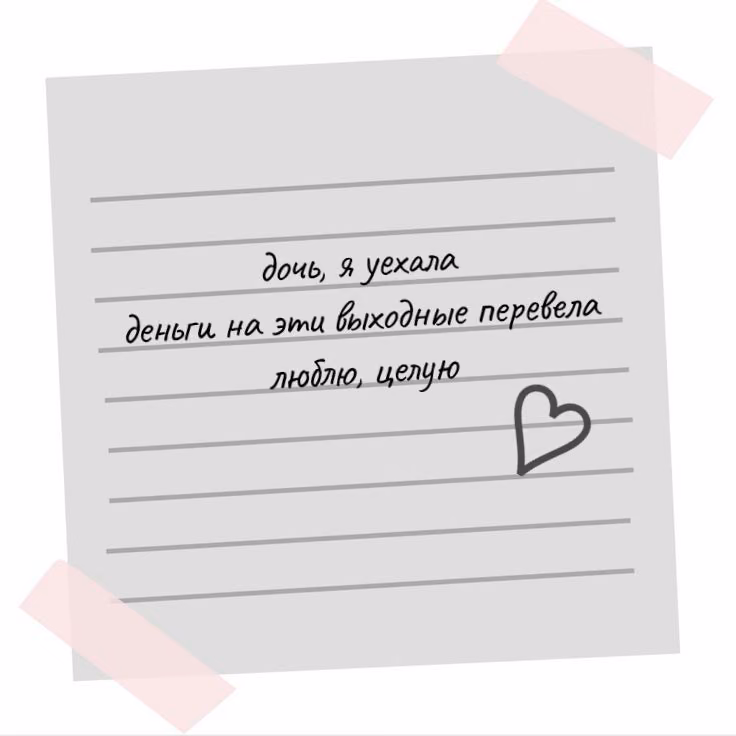 дочь, я уехала
деньги на эти выходные перевела
люблю, целую